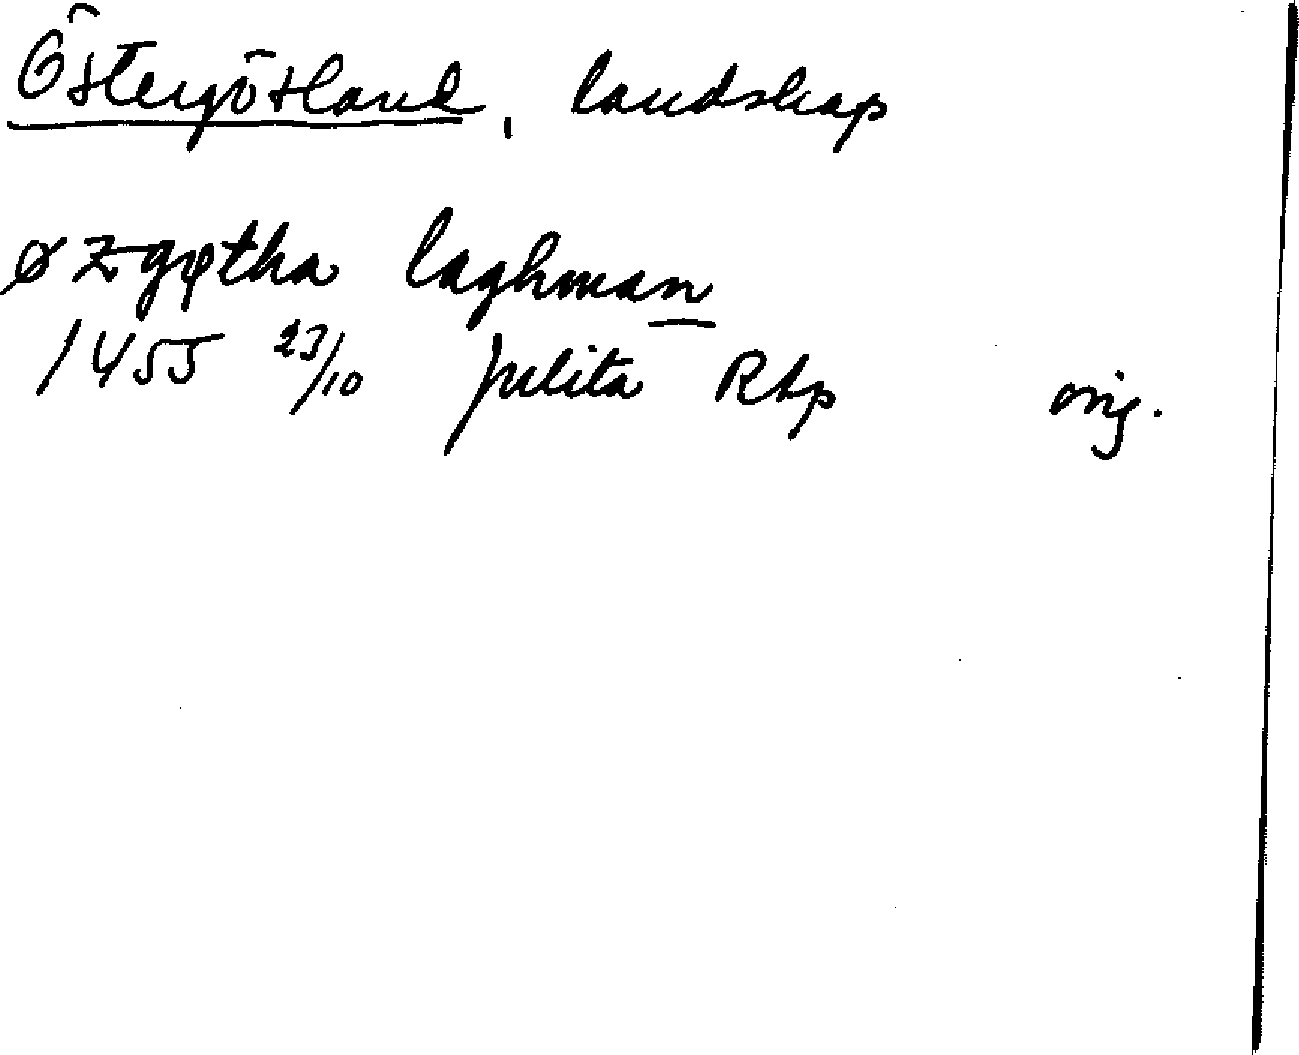 Östergötland, landskap
øzgøtha laghman
1455 23/10 Julita Rbp orig.